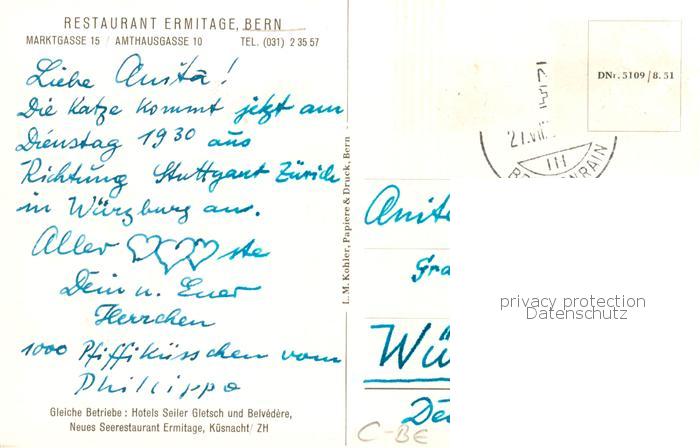 RESTAURANT ERMITAGE, BERN
MARKTGASSE 15 / AMTHAUSGASSE 10 TEL. (031) 2 35 57
Liebe Anita!
Die Katze kommt jetzt am
Dienstag 19 30 aus
Richtung Stuttgart Zürich
in Würzburg an.
Aller ste
Dein u. Euer
Herrchen
1000 Pfiffiküsschen vom
Philippo
Gleiche Betriebe: Hotels Seiler Gletsch und Belvédère,
Neues Seerestaurant Ermitage, Küsnacht/ZH
L. M. Kohler, Papiere & Druck, Bern
DNr. 5109/8.51
Anit
Gra
Wü
De
C-BE
privacy protection
Datenschutz